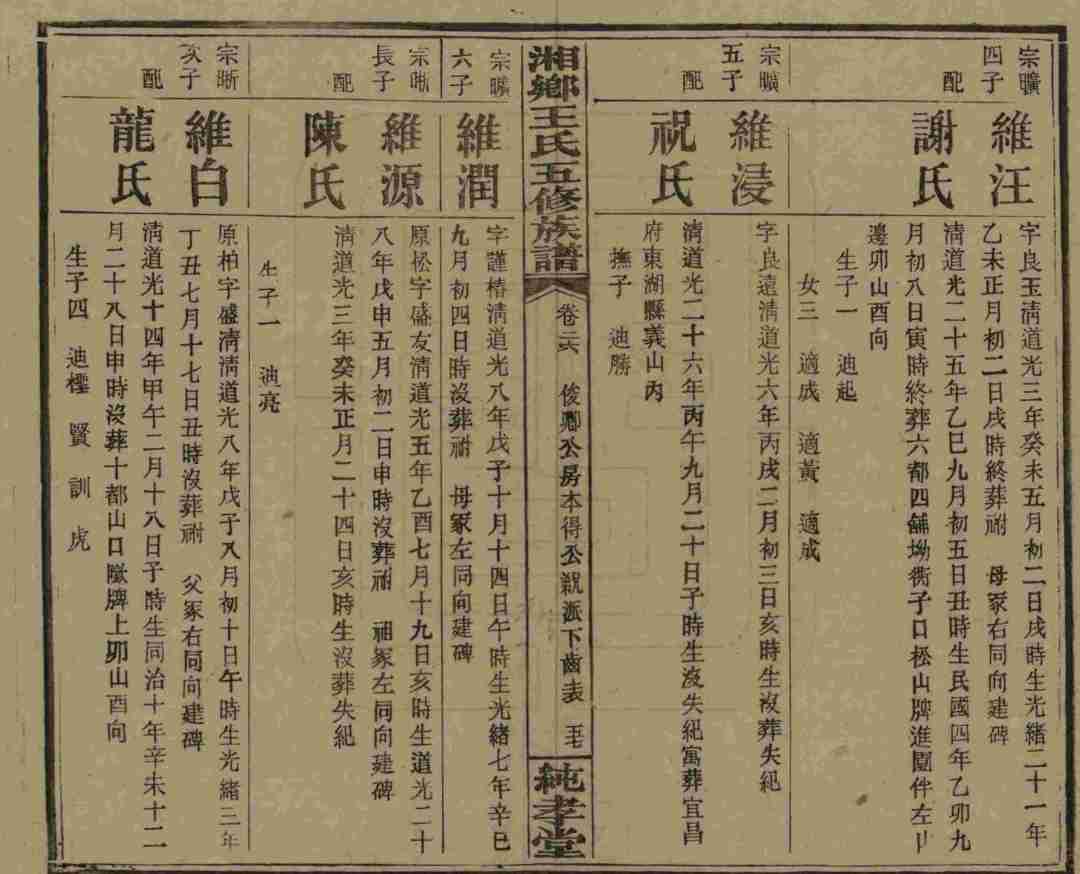 宗曠
四子
配
維汪
謝氏
字良玉清道光三年癸未五月初二日戌時生光緒二十一年
乙未正月初二日戌時終葬祔 母冢右同向建碑
清道光二十五年乙巳九月初五日丑時生民國四年乙卯九
月初八日寅時終葬六都四舖坳衝子口松山牌進圍伴左山
邊卯山酉向
生子一 迪起
女三 適成 適黃 適成
宗曠
五子
配
維浸
祝氏
字良遠清道光六年丙戌二月初三日亥時生沒葬失紀
清道光二十六年丙午九月二十日子時生沒失紀寓葬宜昌
府東湖縣義山內
撫子 迪勝
湘鄉王氏五修族譜
卷二六
俊卿公房本得公親派下齒表
五七
純孝堂
宗曠
六子
維潤
字謹椿清道光八年戊子十月十四日午時生光緒七年辛巳
九月初四日時沒葬祔 母冢左同向建碑
宗晰
長子
配
維源
陳氏
原松字盛友清道光五年乙酉七月十九日亥時生道光二十
八年戊申五月初二日申時沒葬祔 祖冢左同向建碑
清道光三年癸未正月二十四日亥時生沒葬失紀
生子一 迪亮
宗晰
次子
配
維白
龍氏
原柏字盛清清道光八年戊子八月初十日午時生光緒三年
丁丑七月十七日丑時沒葬祔 父冢右同向建碑
清道光十四年甲午二月十八日子時生同治十年辛未十二
月二十八日申時沒葬十都山口牌上卯山酉向
生子四 迪 賢 訓 虎